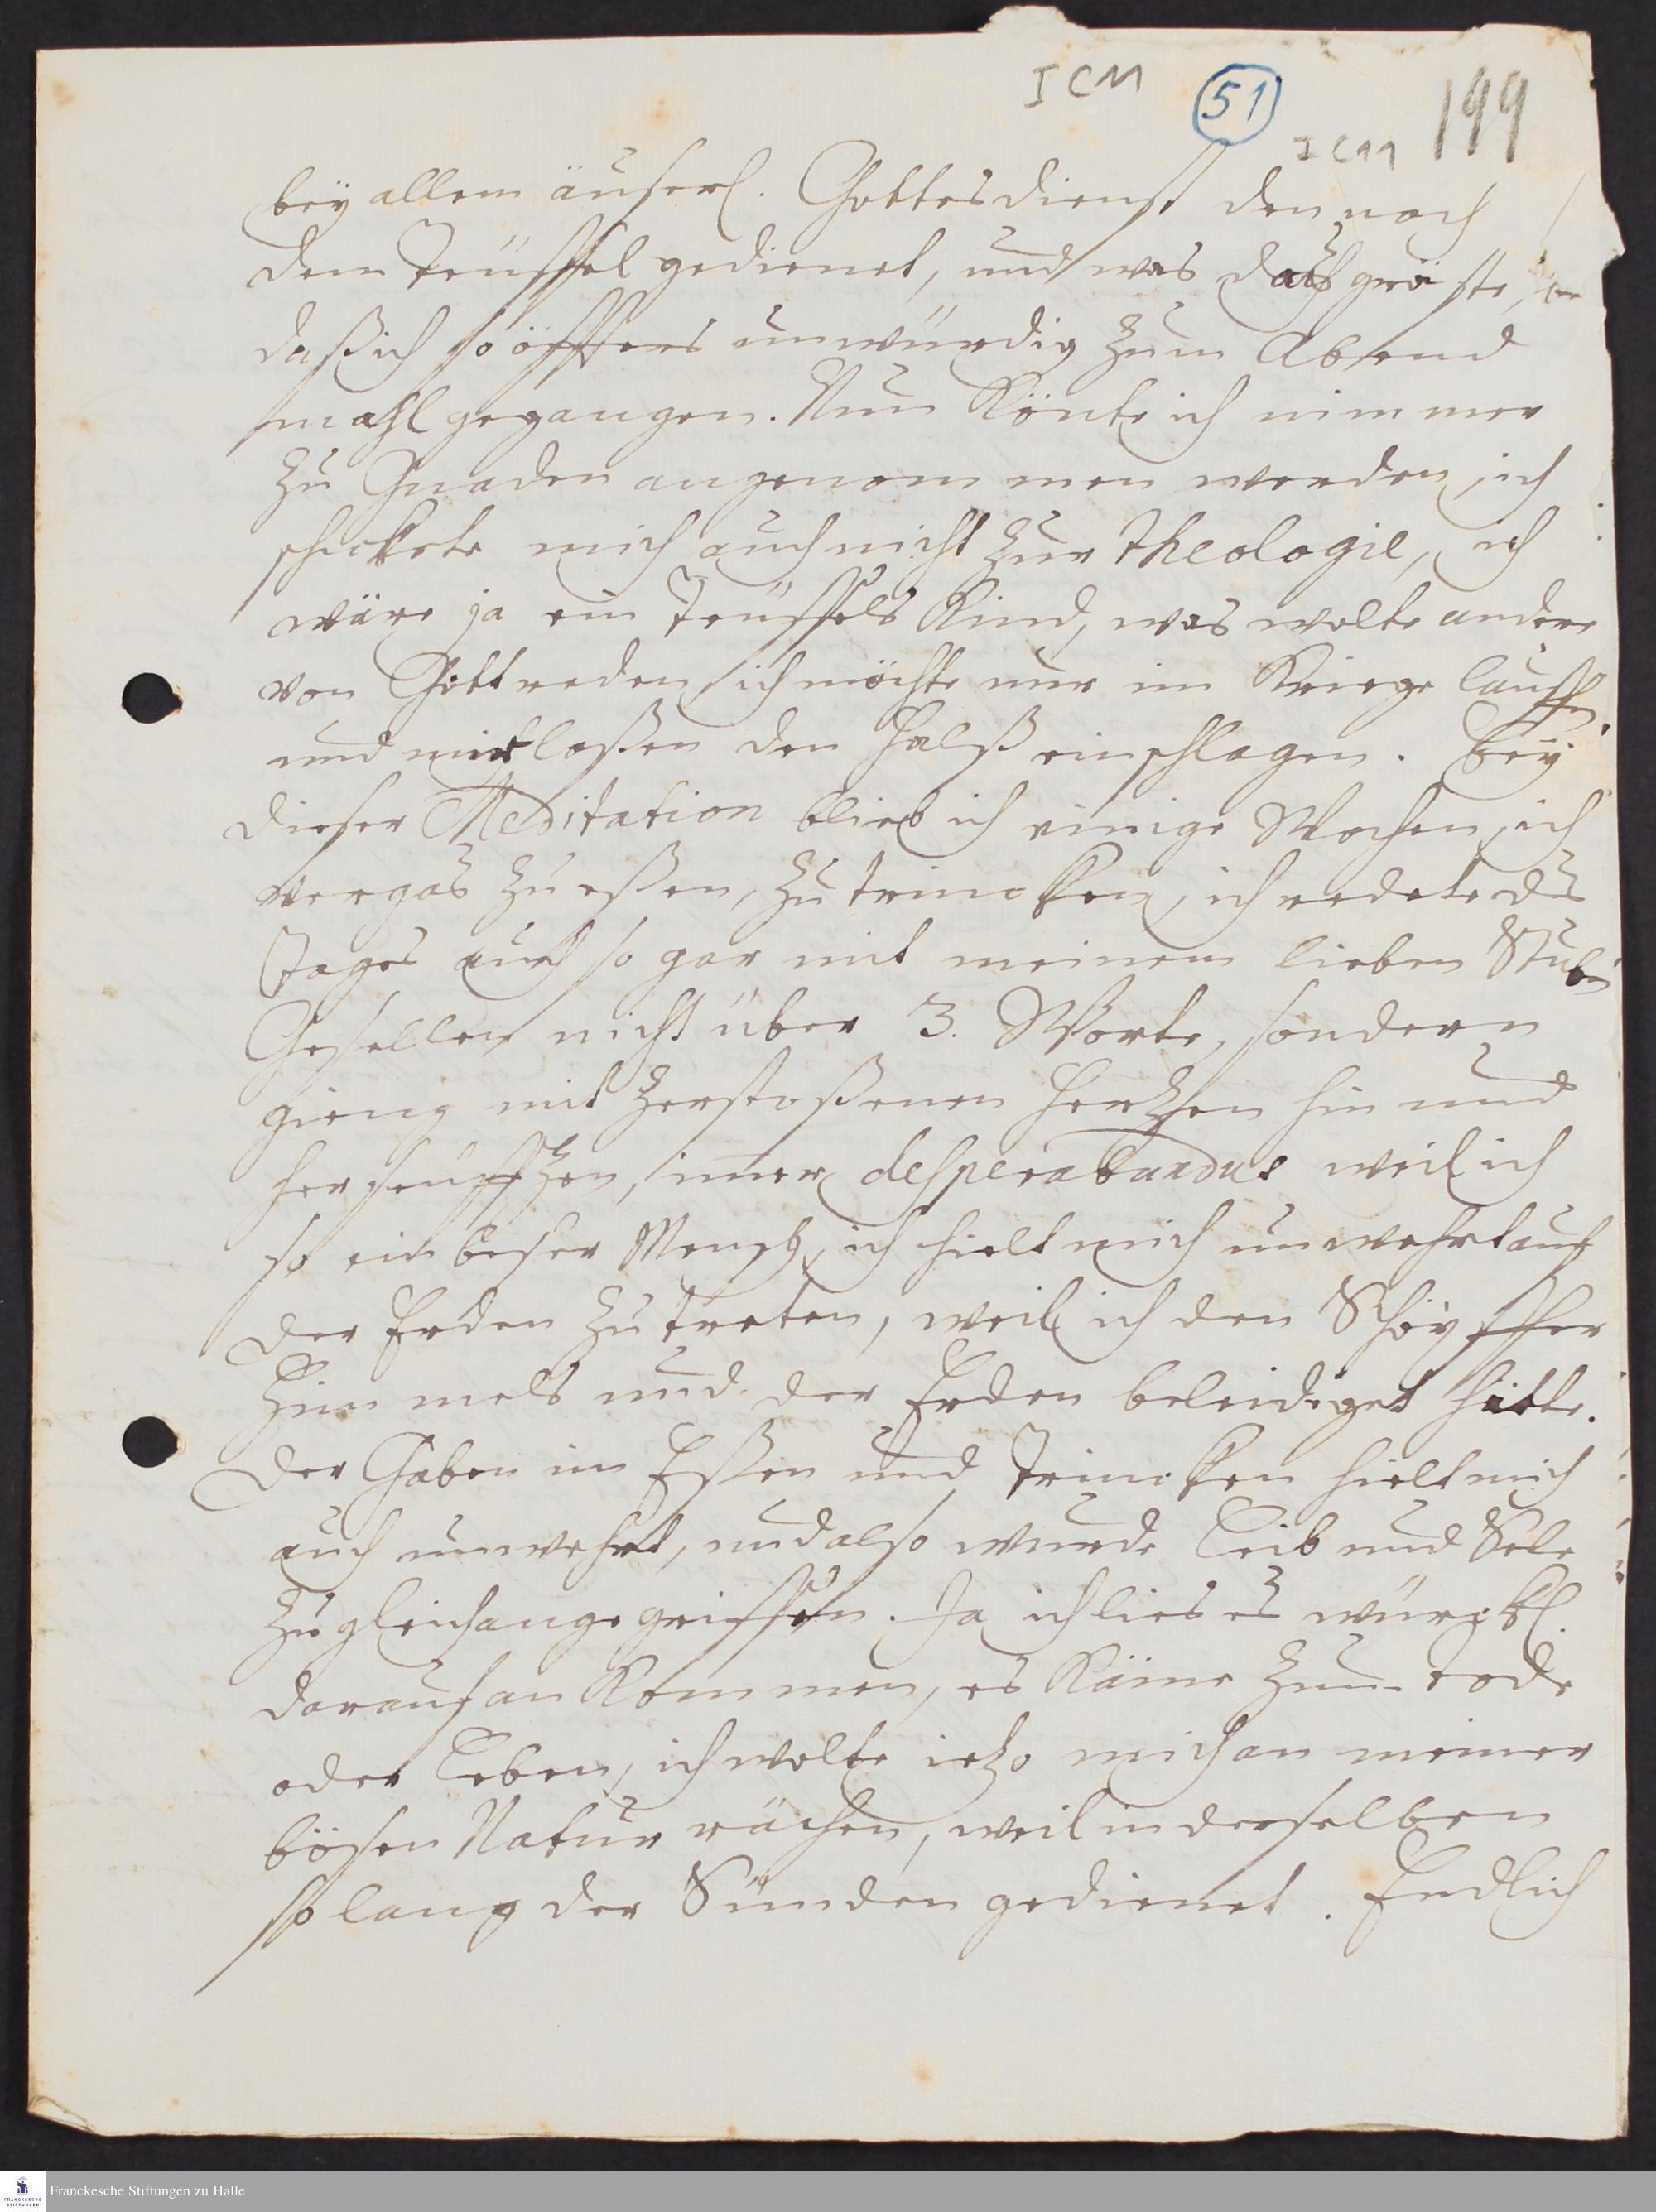 I C 11
51
I C 11
199
bey allem äuserl. Gottesdienst dennoch
dem Teuffel gedienet, und was das gröste,
daß ich so öffters unwürdig zum Abend
mahl gegangen. Nun könte ich nimmer
zu Gnaden angenommen werden, ich
schickete mich auch nicht zur Theologie, ich
wäre ja ein Teuffels Kind, was wolte andere
von Gott reden, ich möchte nur im Kriege lauffen
und mich laßen den Halß einschlagen. Bey
dieser Meditation blieb ich einige Wochen, ich
vergas zu eßen, zu trincken, ich redete des
Tages auch so gar mit meinem lieben Stuben
Gesellen nicht über 3. Worte, sondern
gieng mit zerstoßenen Hertzen hin und
her seufftzen, immer desperabundus weil ich
so ein böser Mensch, ich hielt mich unwehrt auf
der Erden zu treten, weil ich den Schöpffer
Himmels und der Erden beleidiget hätte.
Der Gaben im Eßen und Trincken hielt mich
auch unwehrt, und also wurde Leib und Sele
zugleich angegriffen. Ja ich lies es würckl.
darauf an kommen, es käme zum tode
oder Leben, ich wolte ietzo mich an meiner
bösen Natur rächen, weil in derselben
so lang der Sünden gedienet. Endlich
FRANCKESCHE STIFTUNGEN
Franckesche Stiftungen zu Halle